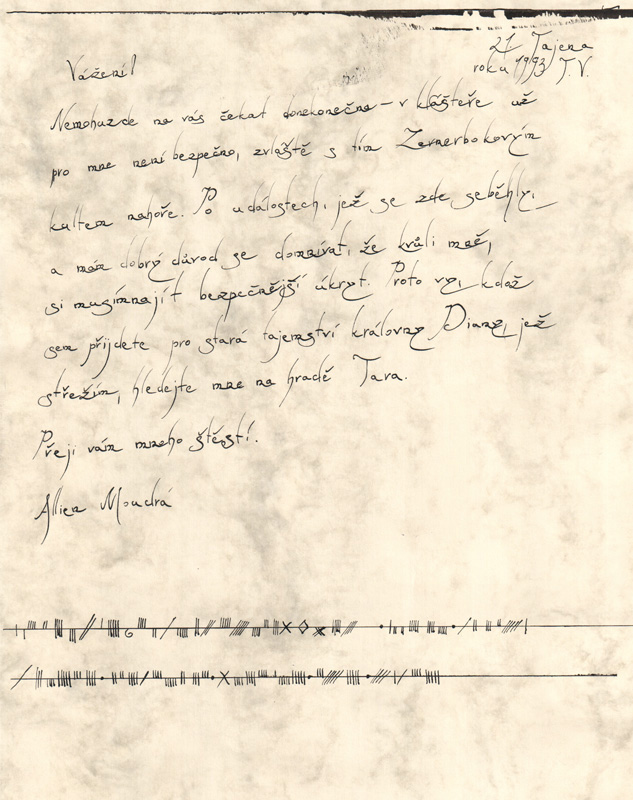 21 Tajena
Vážení!
roku 1993 T.V.
Nemohu zde na vás čekat donekonečna – v klášteře už
pro mne není bezpečno, zvláště s tím Zernerbokovým
kultem nahoře. Po událostech, jež se zde seběhly,
a mám dobrý důvod se domnívat, že kvůli mně,
si musím najít bezpečnější úkryt. Proto vy, kdož
sem přijdete pro stará tajemství královny Diany, jež
střežím, hledejte mne na hradě Tara.
Přeji vám mnoho štěstí!
Allien Moudrá